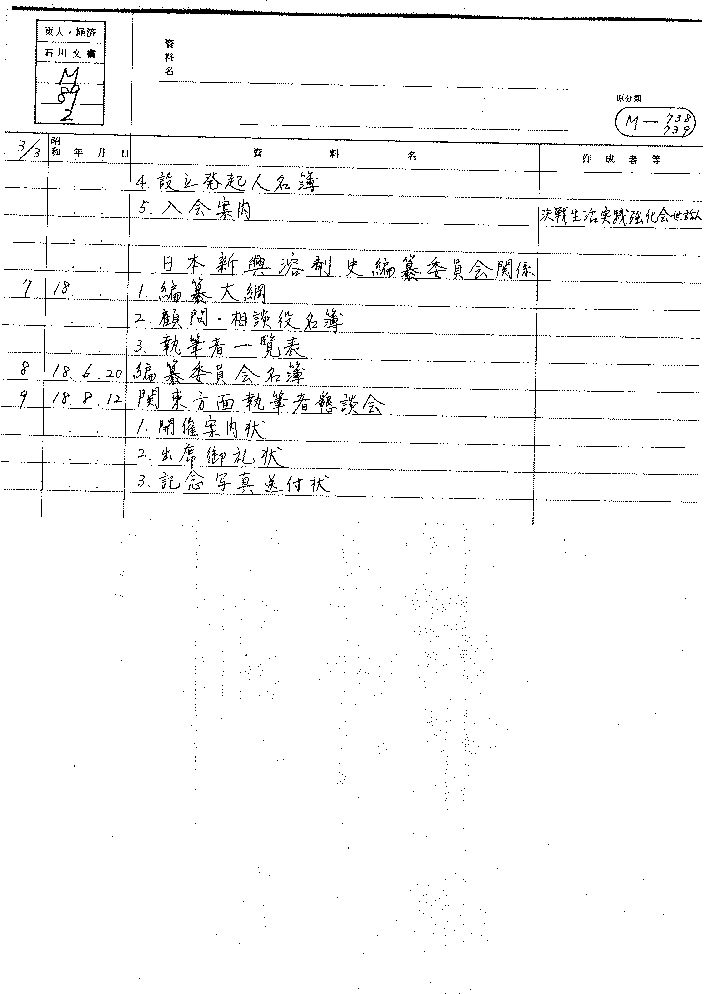 東大・経済
石川文書
M
89
2
資料名
原分類
M—738
739
3/3 昭和 年 月 日 資料名 作成者等
4. 設立発起人名簿
5. 入会案内 決戦生活実践強化会世話人
日本新興溶剤史編纂委員会関係
7 18 . . 1. 編纂大綱
2. 顧問・相談役名簿
3. 執筆者一覧表
8 18. 6. 20 編纂委員会名簿
9 18. 8. 12 関東方面執筆者懇談会
1. 開催案内状
2. 出席御礼状
3. 記念写真送付状